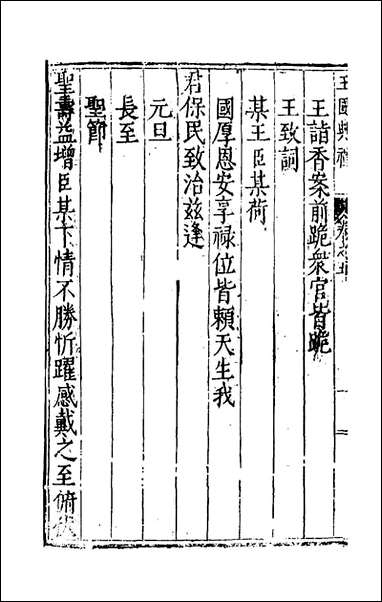 王國典禮 卷之五
王詣香案前跪衆官皆跪
王致詞
某王臣某荷
國厚恩安享禄位皆賴天生我
君保民致治兹逢
元旦
長至
聖節
聖壽益增臣某下情不勝忻躍感戴之至俯伏